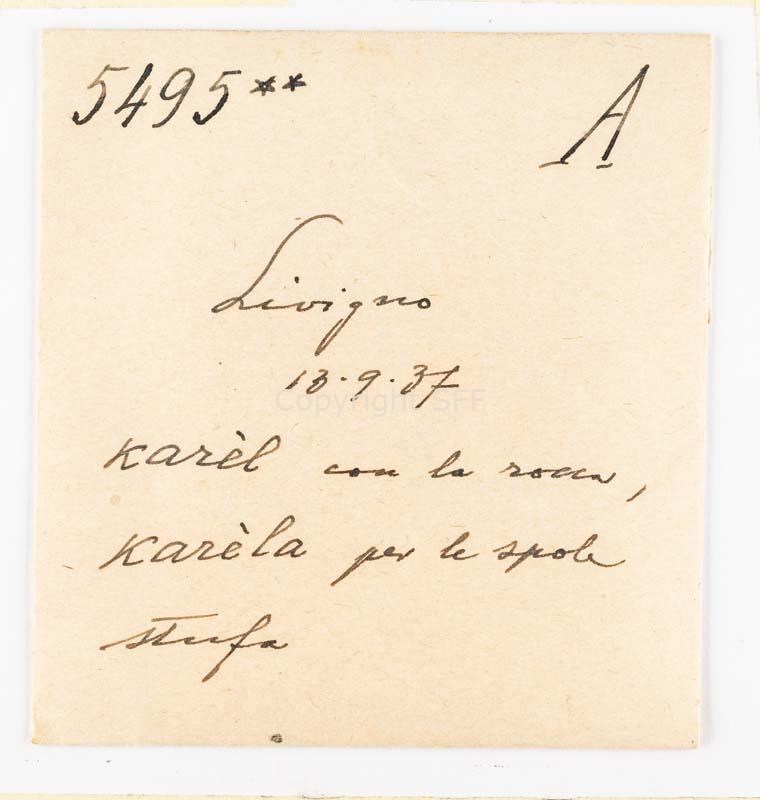 5495** A
Livigno
13.9.37
Copyright SFF
karèl con la rocca,
karèla per le spole
stufa